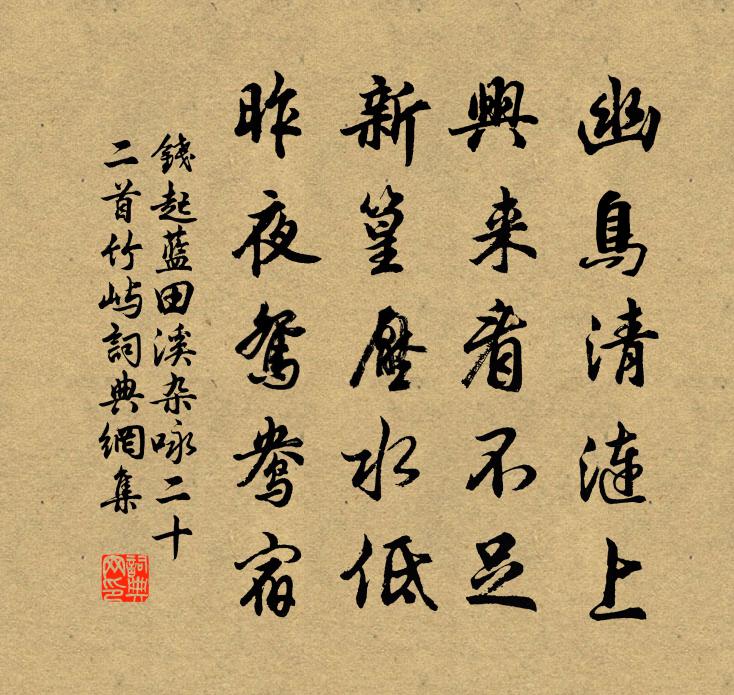 幽鳥清漣上
興来看不足
新篁壓水低
昨夜鴛鴦宿
錢起藍田溪杂咏二十
二首竹嶼詞典網集
詞典网印